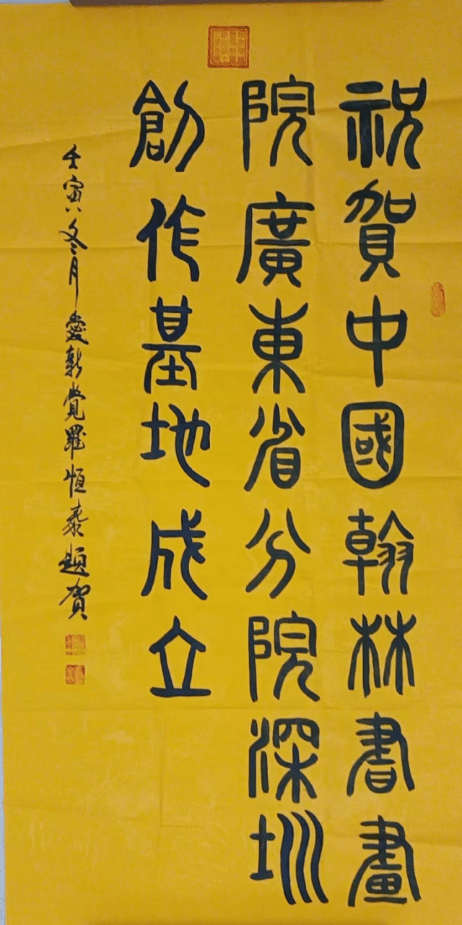 祝賀中國翰林書畫
院廣東省分院深圳
創作基地成立
壬寅冬月愛新覺羅恒泰題賀